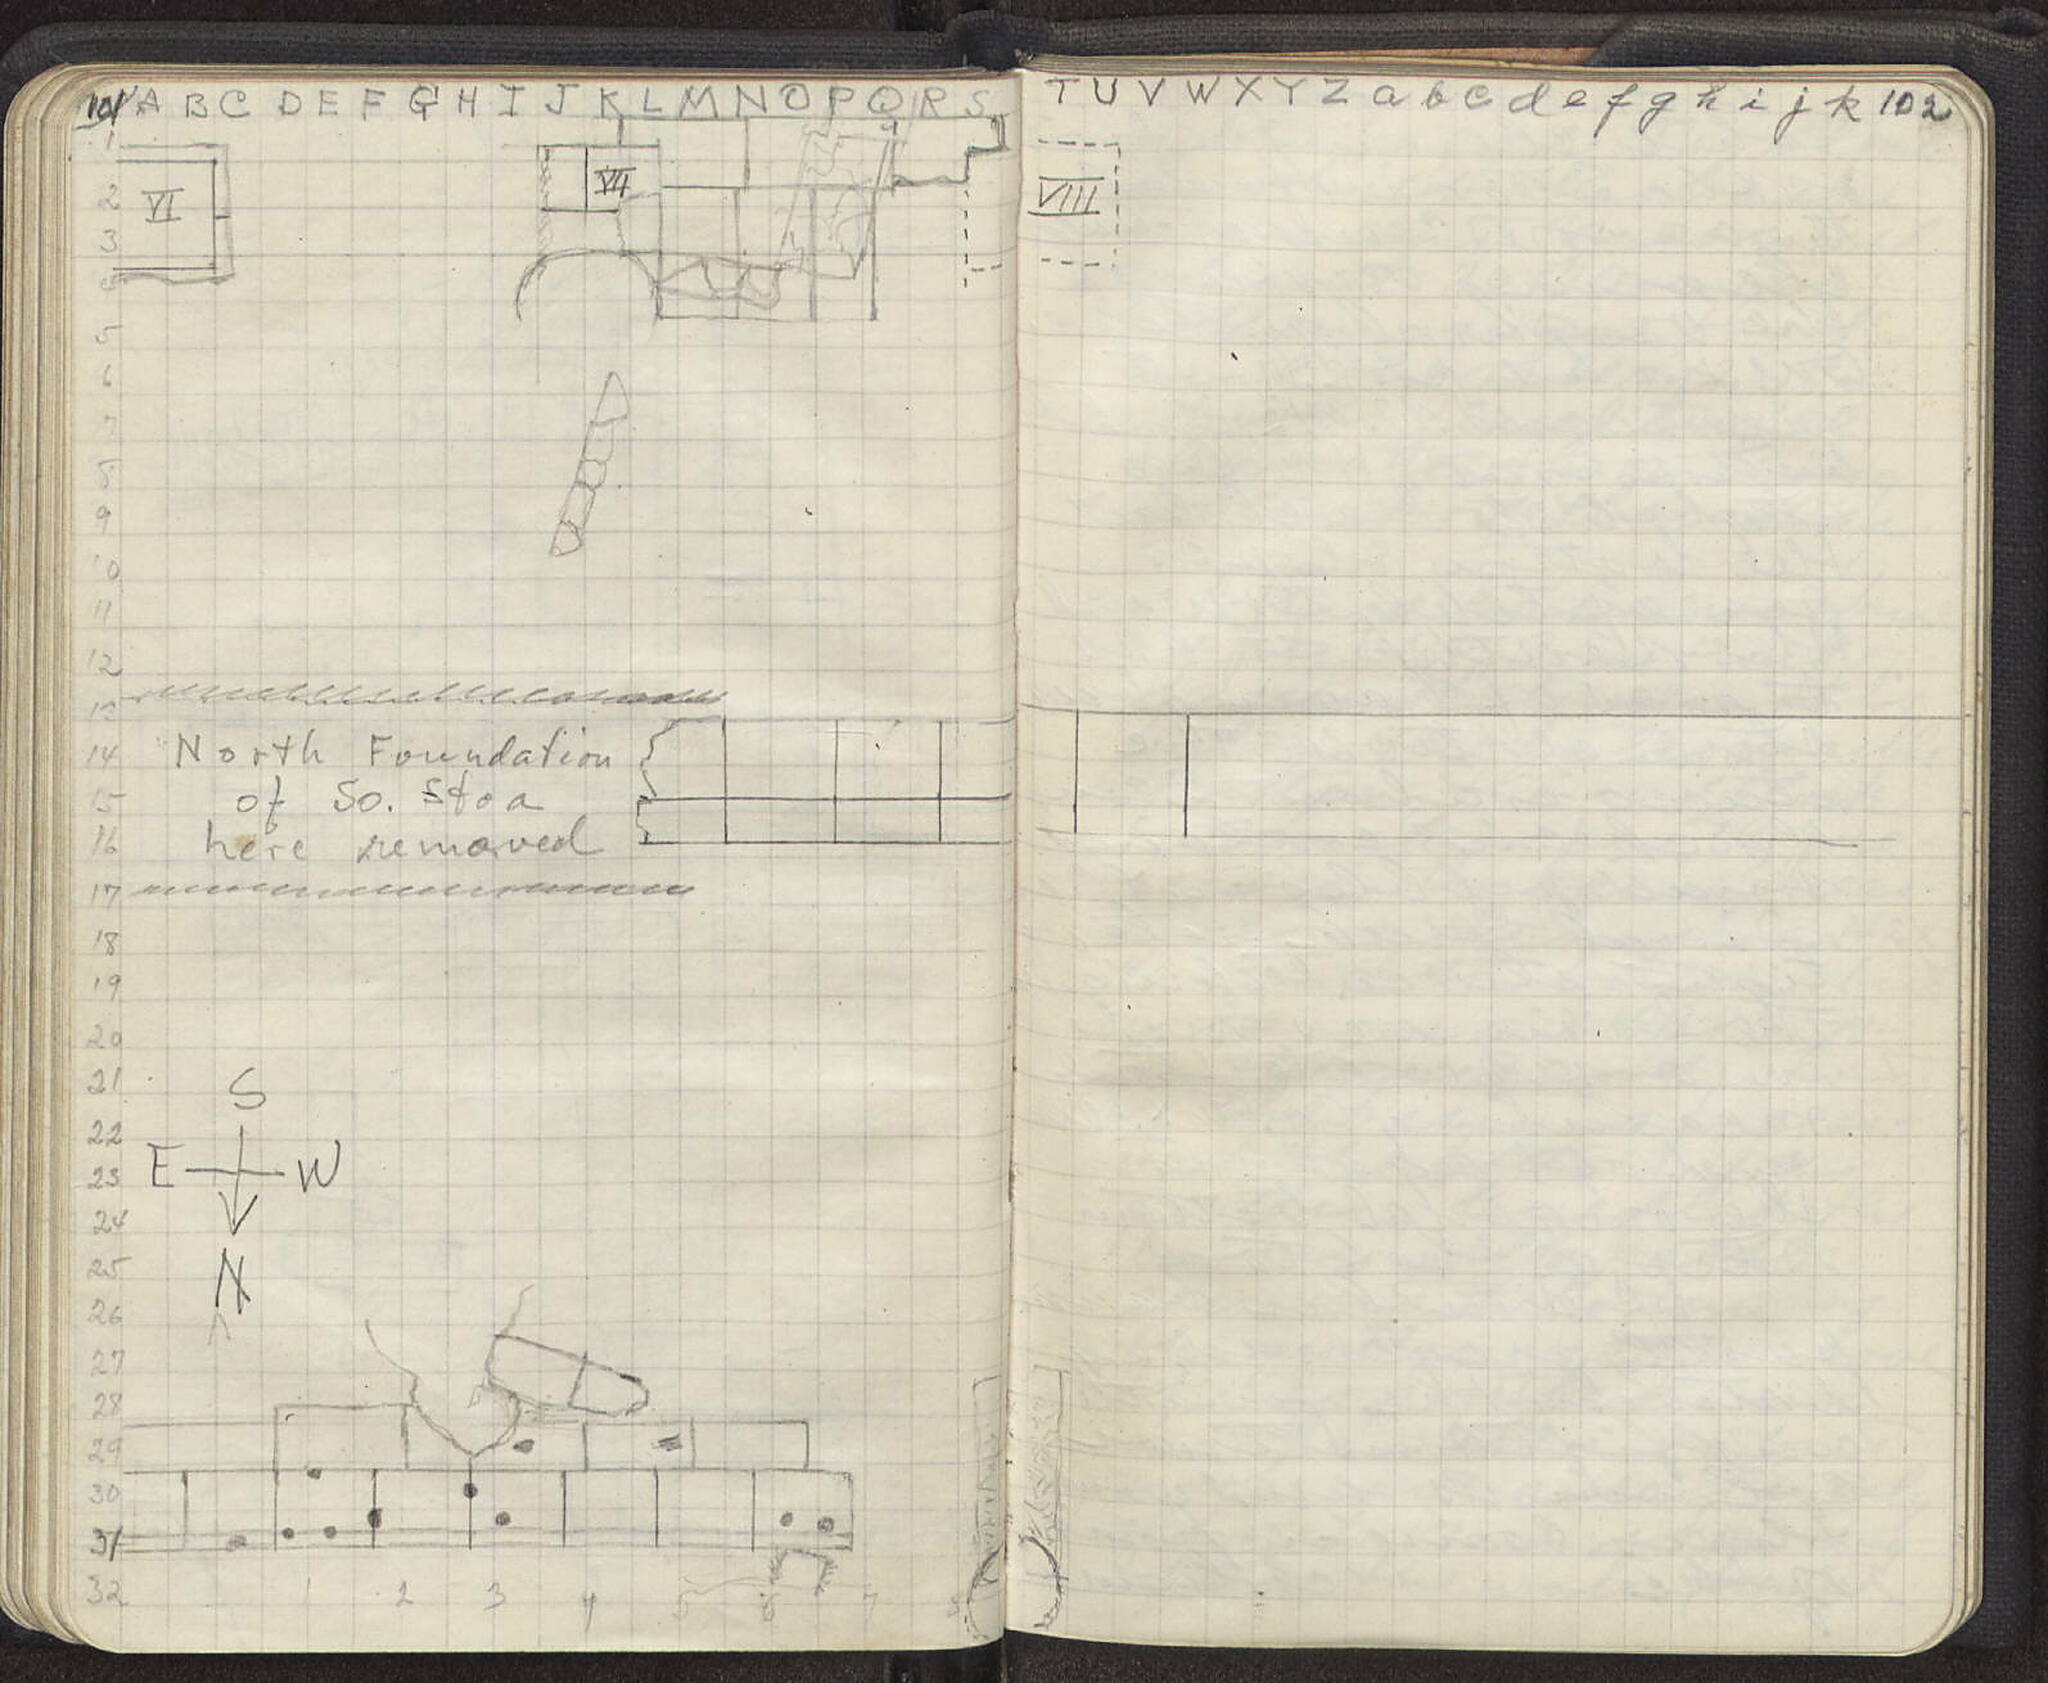 101 A B C D E F G H I J K L M N O P Q R S T U V W X Y Z a b c d e f g h i j k 102
1
VI
VII
VIII
2
3
5
6
7
9
10
11
12
13
14 North Foundation
15 of So. Stoa
16 here removed
17
18
19
20
21
S
22
E W
23
24
25
N
26
27
28
29
30
31
32
1 2 3 4 5 6 7